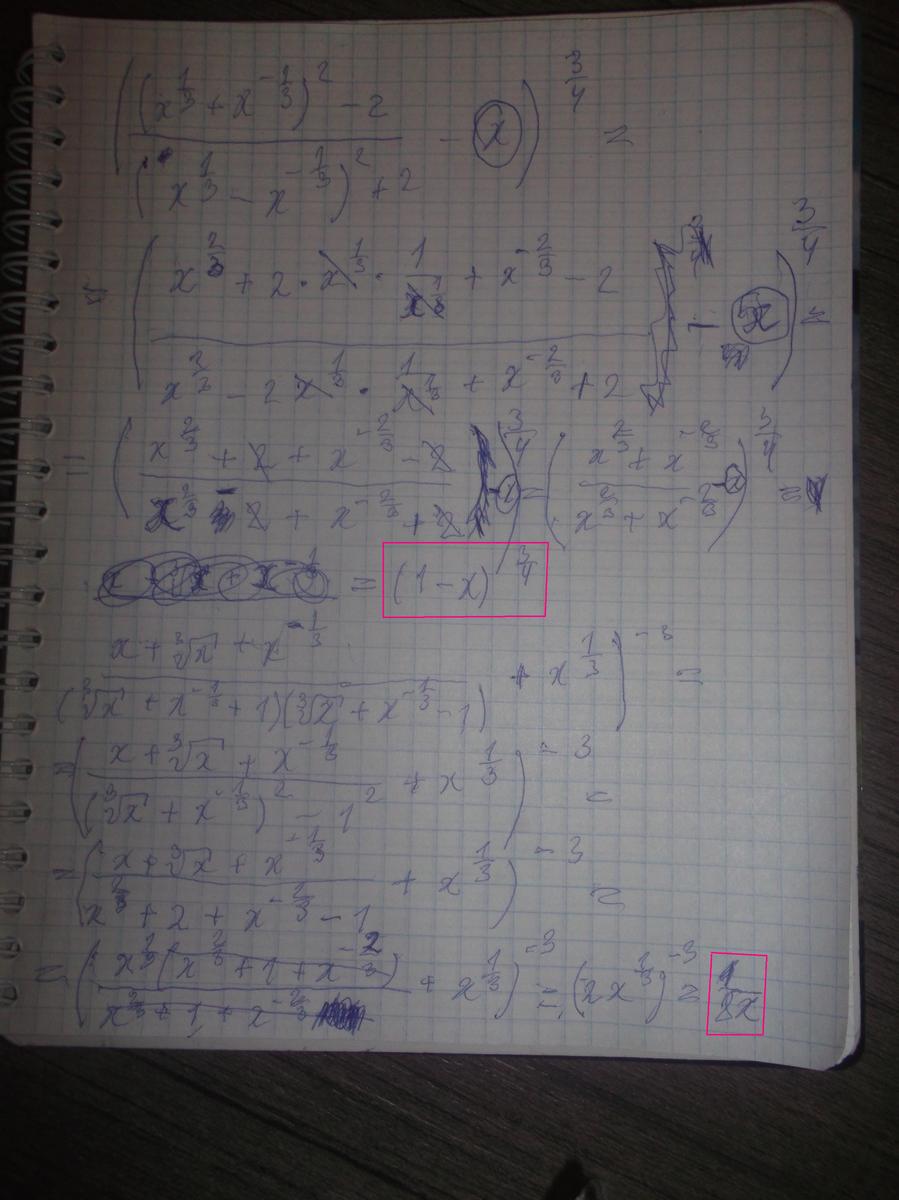 (((x^{1/3} + x^{-1/3})^2 - 2) / ((x^{1/3} - x^{-1/3})^2 + 2) - x)^{3/4} =
= ((x^{2/3} + 2 · x^{1/3} · 1/x^{1/3} + x^{-2/3} - 2) / (x^{2/3} - 2 x^{1/3} · 1/x^{1/3} + x^{-2/3} + 2) - x)^{3/4} =
= ((x^{2/3} + 2 + x^{-2/3} - 2) / (x^{2/3} - 2 + x^{-2/3} + 2) - x)^{3/4} = ((x^{2/3} + x^{-2/3}) / (x^{2/3} + x^{-2/3}) - x)^{3/4} =
= (1 - x)^{3/4}
(x + ∛x + x^{-1/3}) / ((∛x + x^{-1/3} + 1)(∛x + x^{-1/3} - 1)) + x^{1/3})^{-3} =
= ((x + ∛x + x^{-1/3}) / ((∛x + x^{-1/3})^2 - 1^2) + x^{1/3})^{-3} =
= ((x + ∛x + x^{-1/3}) / (x^{2/3} + 2 + x^{-2/3} - 1) + x^{1/3})^{-3} =
= ((x^{1/3}(x^{2/3} + 1 + x^{-2/3})) / (x^{2/3} + 1 + x^{-2/3}) + x^{1/3})^{-3} = (2x^{1/3})^{-3} = 1/8x